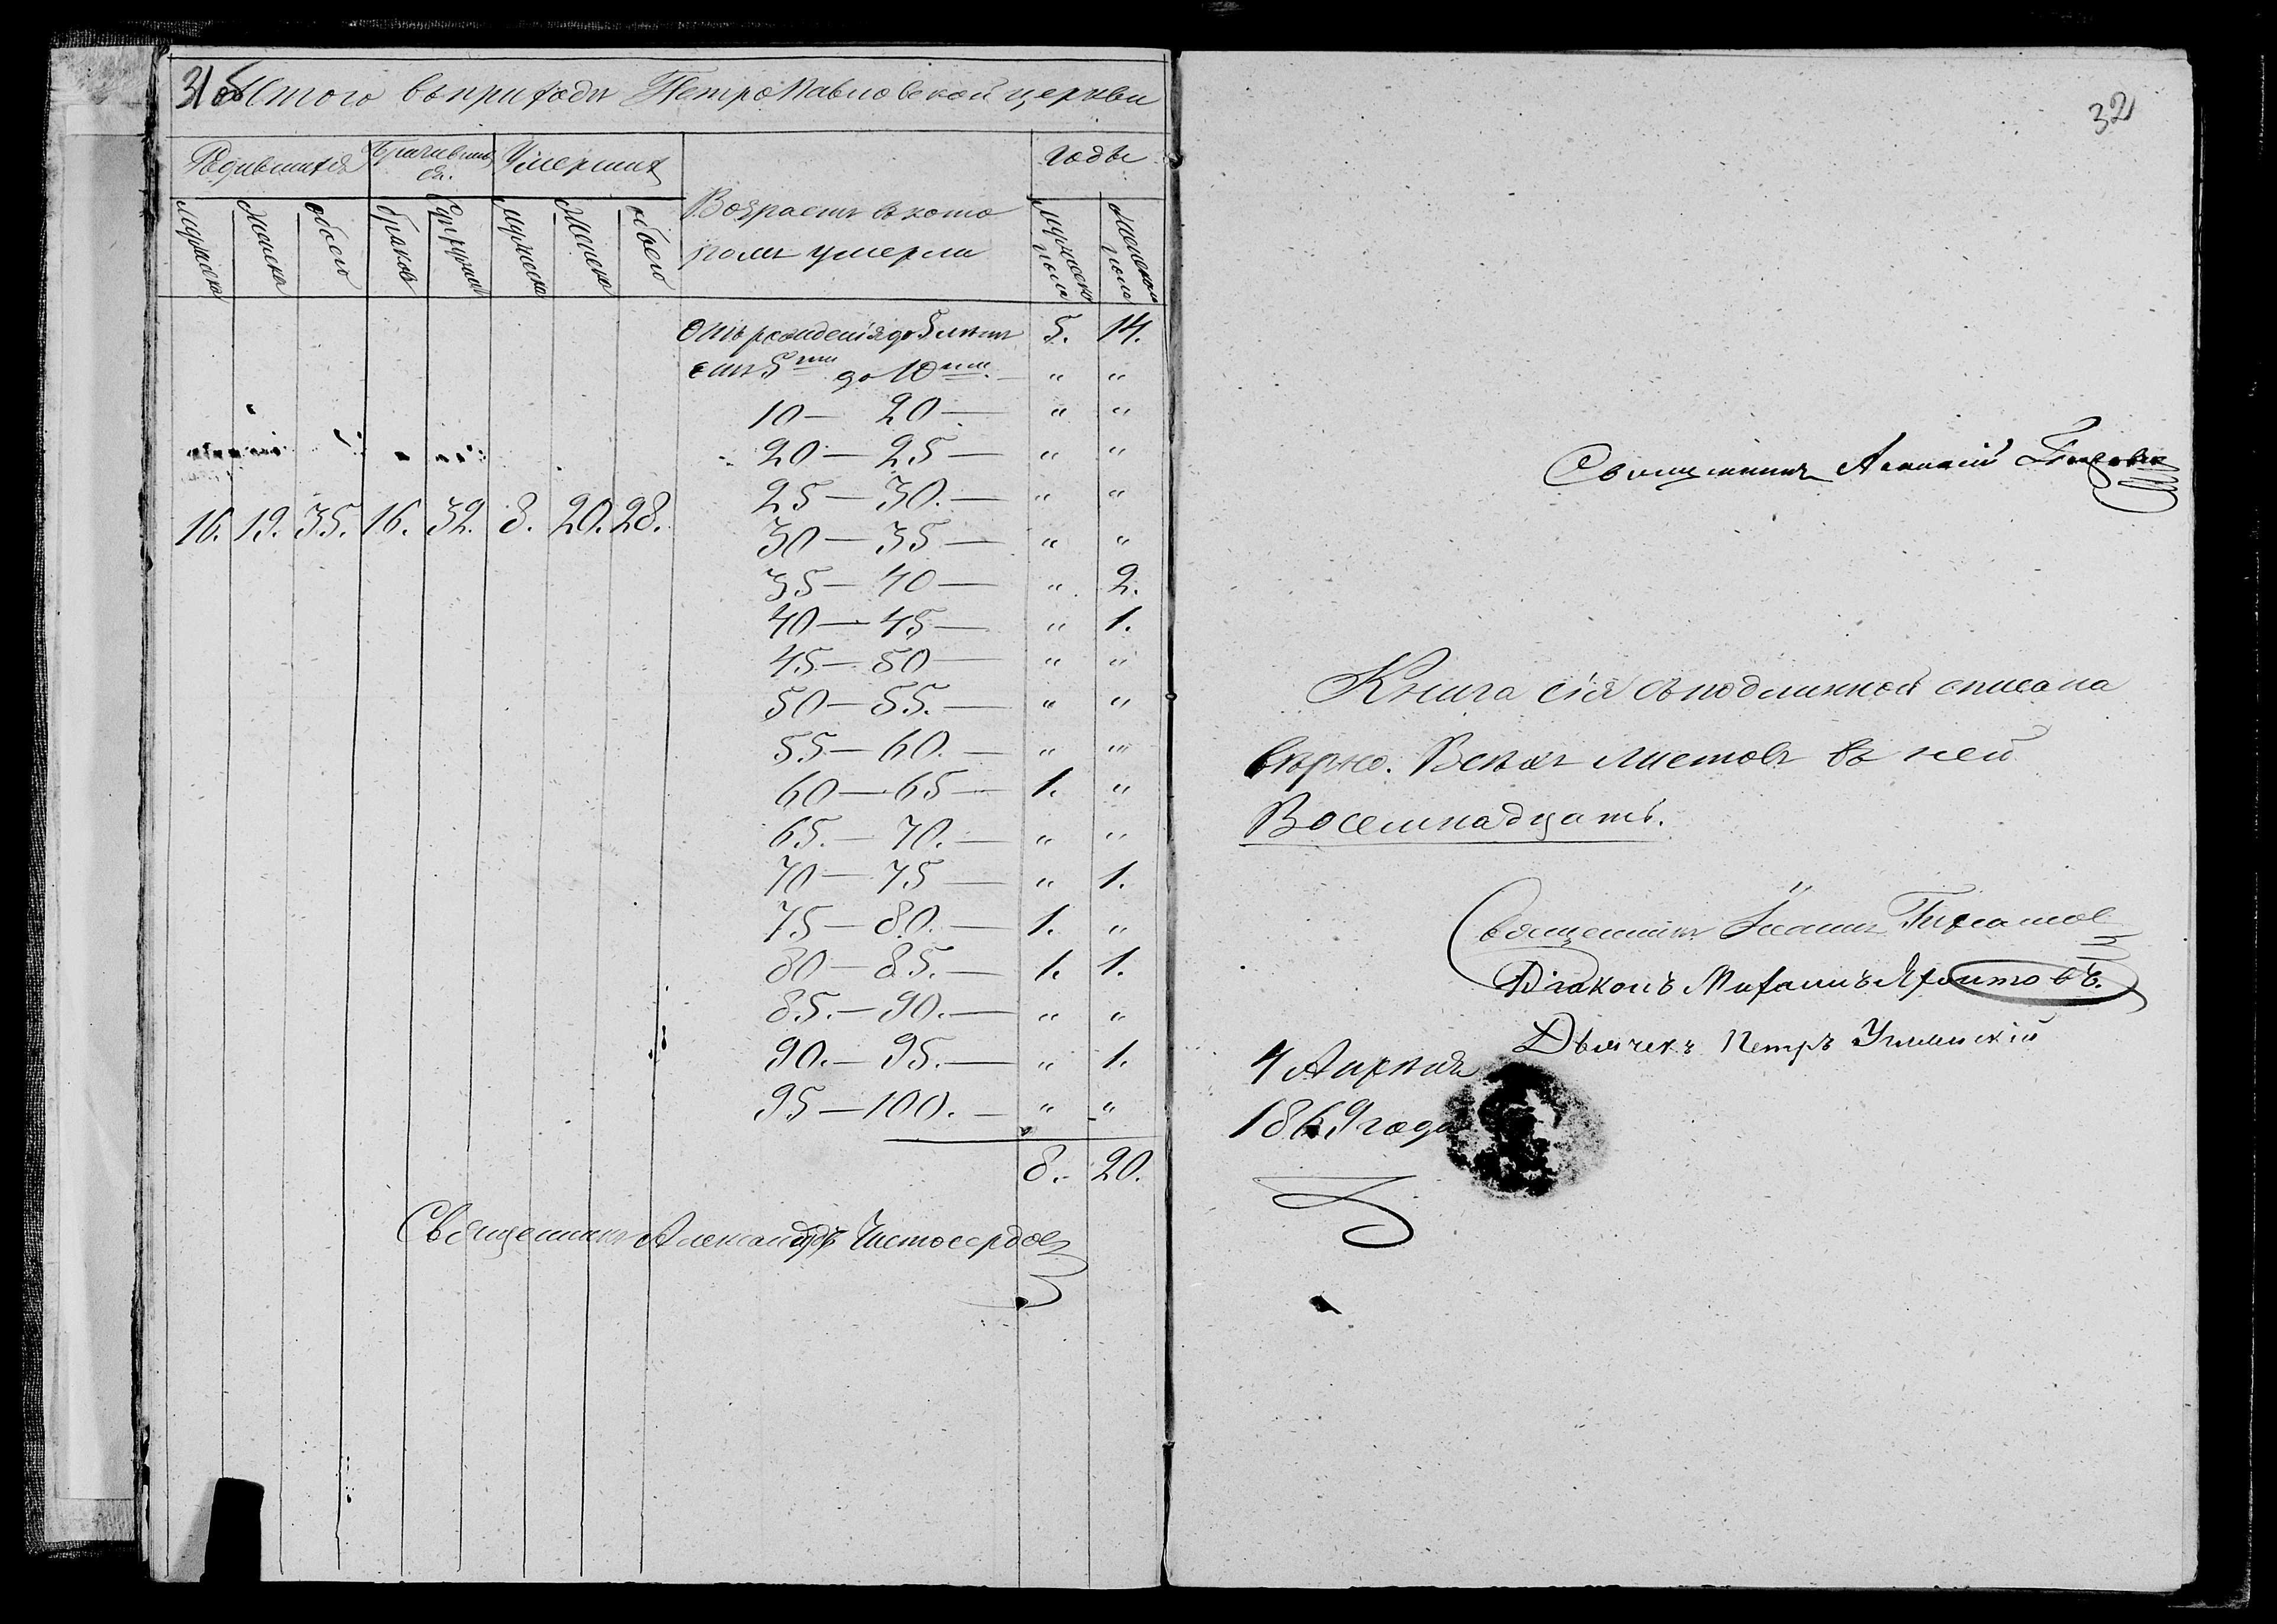 31 об
Итого въ приходѣ Петропавловской церкви
Родившихся Брачивших ся. Умерших годы
Возрастъ въ кото
ромъ умерли
Мужеска Женска обоего браковъ Супружн Мужеска Женска обоего Мужеска пола Женскаго пола
Отъ рожденія до 5 лѣтъ 5. 14.
отъ 5ти до 10ти. — „ „
10 — 20 — „ „
20 — 25 — „ „
25 — 30. — „ „
16. 19. 35. 16. 32. 8. 20. 28.
30 — 35 — „ „
35 — 40 — „ 2.
40 — 45 — „ 1.
45 — 50 — „ „
50 — 55. — „ „
55 — 60. — „ „
60 — 65 — 1. „
65. — 70. — „ „
70 — 75 — „ 1.
75 — 80. — 1. „
80 — 85. — 1. 1.
85. — 90. — „ „
90. — 95. — „ 1.
95 — 100. — „ „
8. 20.
Священникъ Александръ Чистосердов
32
Священникъ
Книга сія съ подлинной списана
вѣрно. Всѣхъ листовъ въ ней
Восемнадцать.
Священникъ Іоаннъ
Діаконъ Михаилъ
Дьячекъ Петръ
4 Апрѣля
1869 года